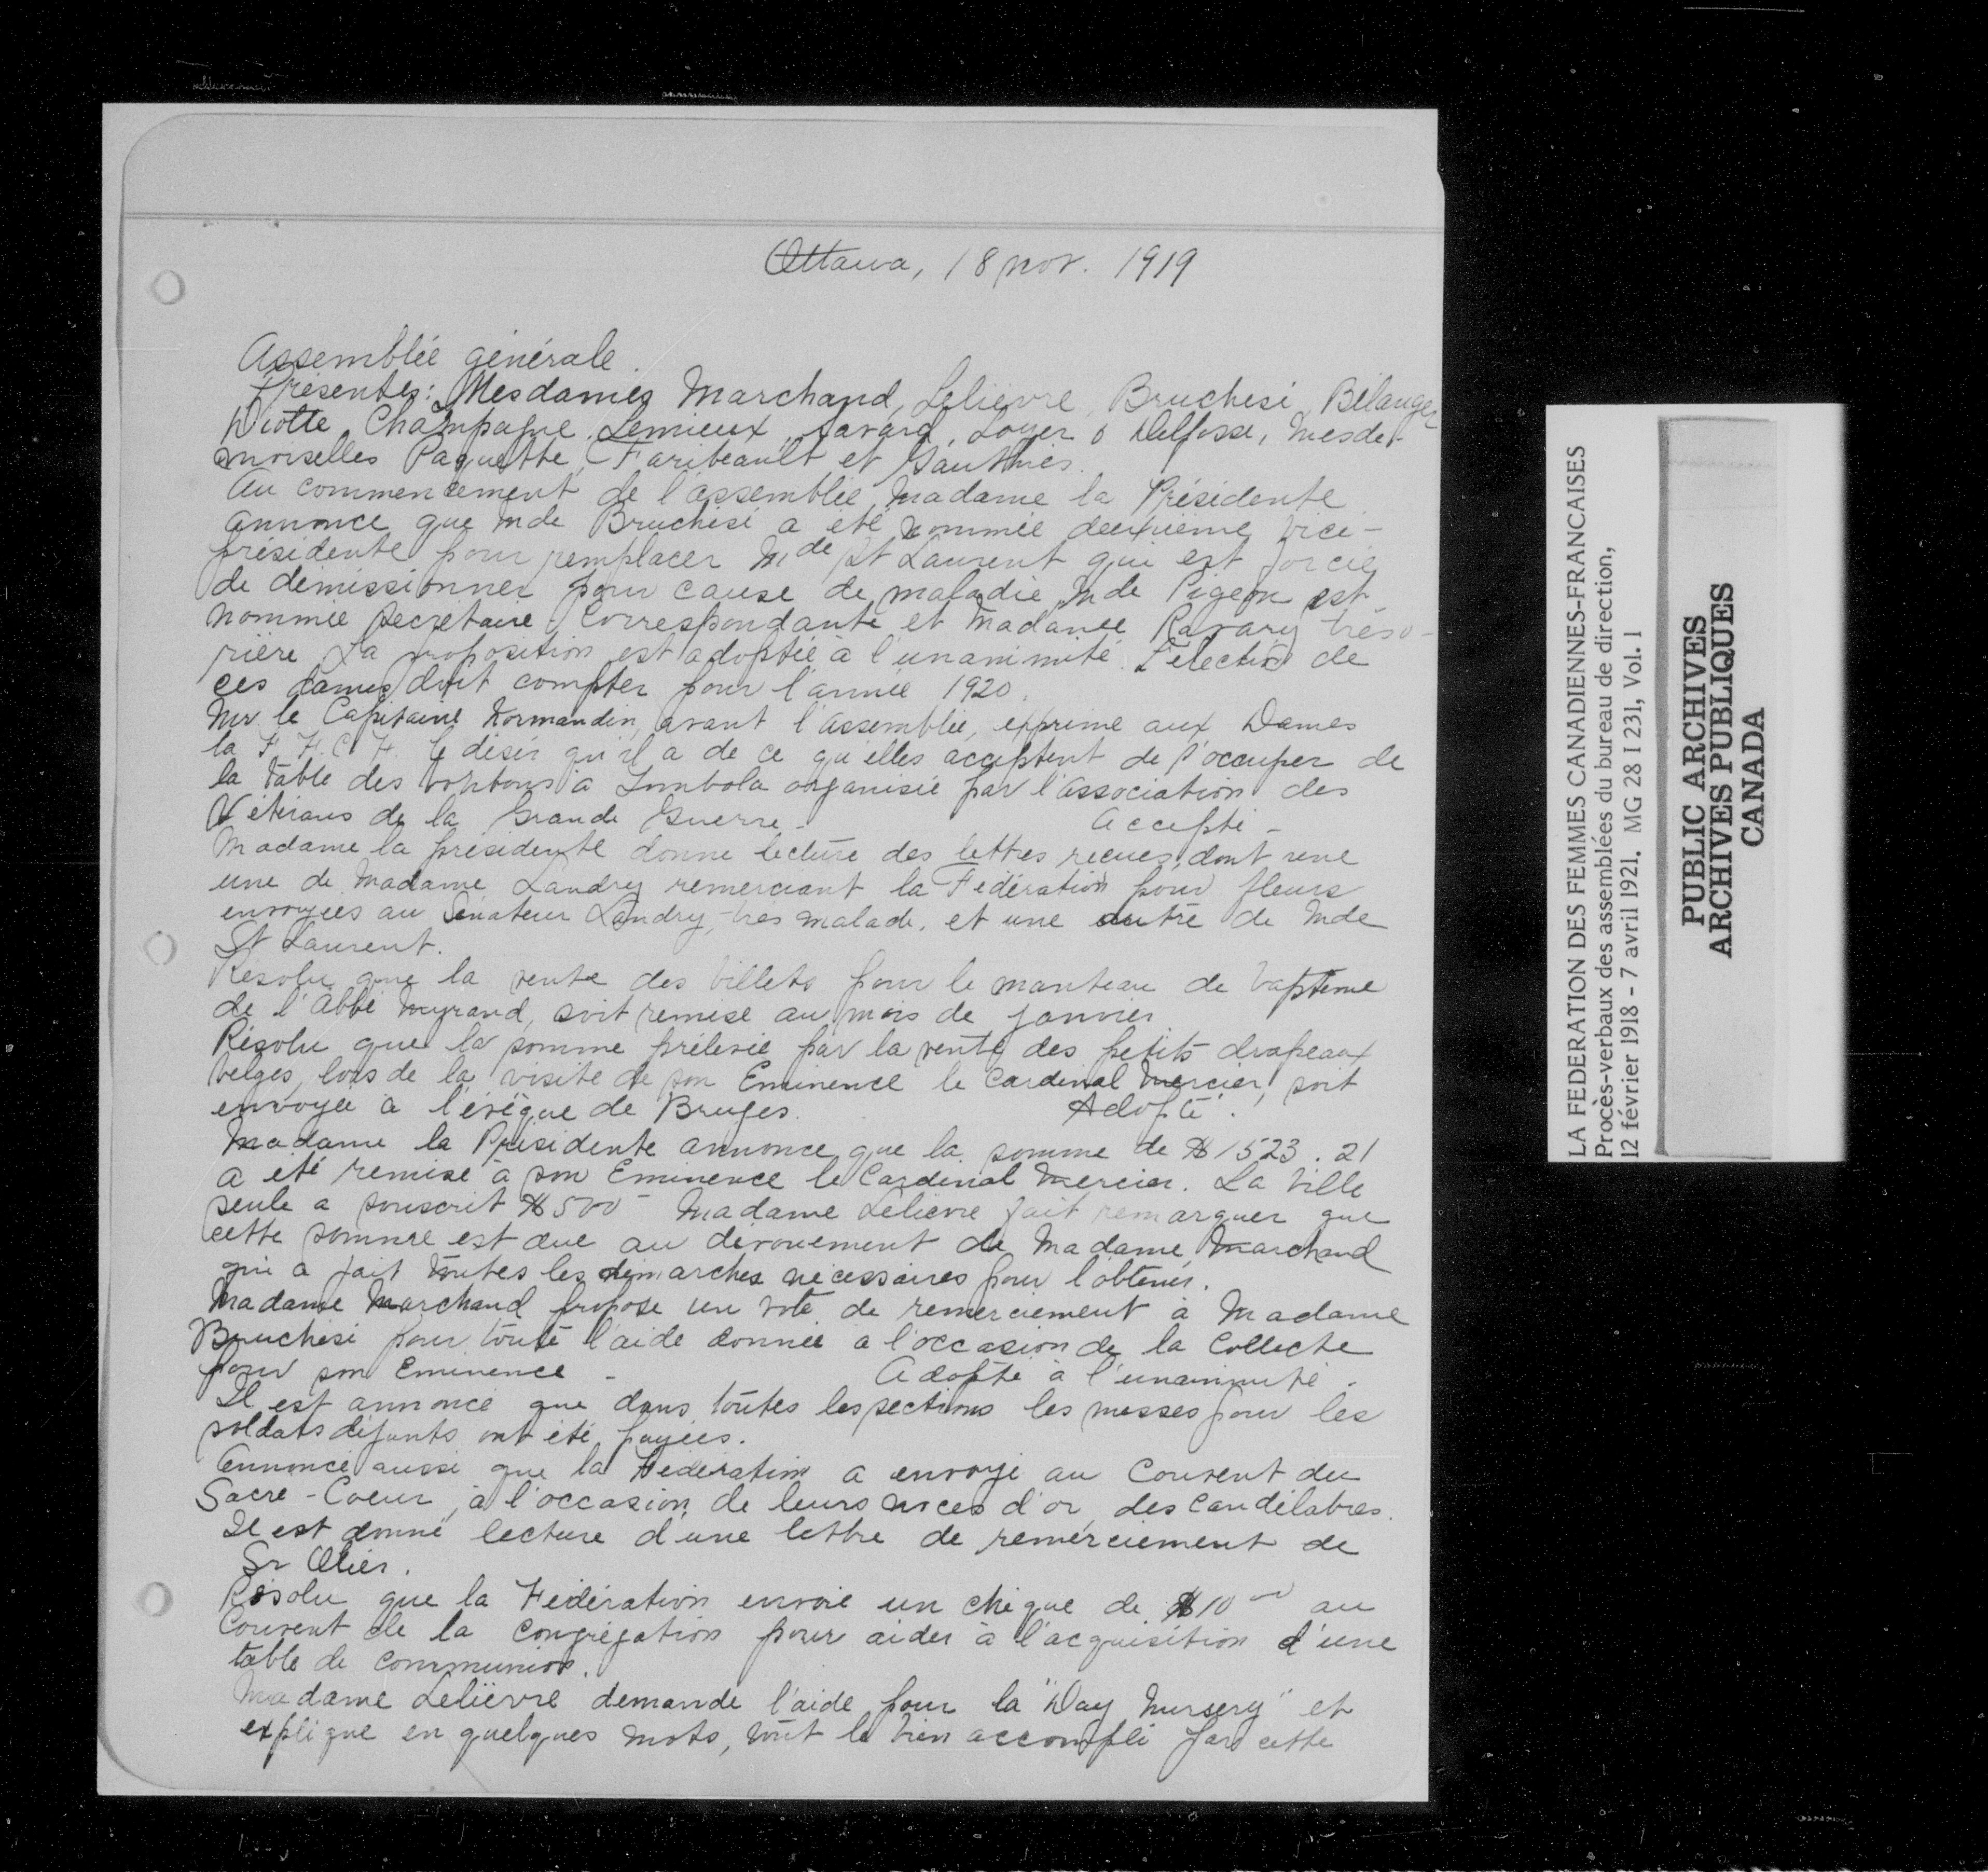 Ottawa, 18 nov. 1919
Assemblée générale.
Présentes: Mesdames Marchand, Lelievre, Bruchesi, Bélanger
Diotte, Champagne, Lemieux, Savard, Loyer, Delfosse, Mesde-
moiselles Paquette, Faribeault et Gauthier.
Au commencement de l'assemblée, Madame la Présidente
annonce que Mde Bruchési a été nommée deuxième vice-
présidente pour remplacer Mde St Laurent qui est forcée
de démissionner pour cause de maladie, Mde Pigeon est
nommée secrétaire correspondante et Madame Ravary tréso-
rière. La proposition est adoptée à l'unanimité. L'election de
ces dames doit compter pour l'année 1920.
Mr le Capitaine Normandin, avant l'assemblée, exprime aux Dames
la F. F. C. F. le désir qu'il a de ce qu'elles acceptent de s'occuper de
la table des bonbons à Tombola organisée par l'Association des
Vétérans de la Grande Guerre - Accepté -
Madame la présidente donne lecture des lettres reçues, dont une
une de Madame Landry remerciant la Fédération pour fleurs
envoyées au Sénateur Landry, très malade, et une autre de Mde
St Laurent.
Résolu que la vente des billets pour le manteau de baptême
de l'Abbé Myrand, soit remise au mois de janvier
Résolu que la somme prélevée par la vente des petits drapeaux
belges, lors de la visite de son Eminence le Cardinal Mercier, soit
envoyée à l'évêque de Bruges. Adopté.
Madame la Présidente annonce que la somme de $1523.21
a été remise à son Eminence le Cardinal Mercier. La Ville
seule a souscrit $500 - Madame Lelièvre fait remarquer que
cette somme est due au dévouement de Madame Marchand
qui a fait toutes les démarches nécessaires pour l'obtenir.
Madame Marchand propose un vote de remerciement à Madame
Bruchési pour toute l'aide donnée à l'occasion de la Collecte
pour son Eminence - Adopté à l'unanimité.
Il est annoncé que dans toutes les sections les messes pour les
soldats défunts ont été payées.
Annoncé aussi que la Fédération a envoyé au Couvent du
Sacré-Coeur, à l'occasion de leurs noces d'or, des candélabres.
Il est donné lecture d'une lettre de remerciement de
Sr Olier.
Résolu que la Fédération envoie un chèque de $10 00 au
Couvent de la Congrégation pour aider à l'acquisition d'une
table de communion.
Madame Lelièvre demande l'aide pour la "Day Nursery" et
explique en quelques mots, tout le bien accompli par cette
LA FEDERATION DES FEMMES CANADIENNES-FRANCAISES
Procès-verbaux des assemblées du bureau de direction,
12 février 1918 - 7 avril 1921. MG 28 I 231, Vol. 1
PUBLIC ARCHIVES
ARCHIVES PUBLIQUES
CANADA